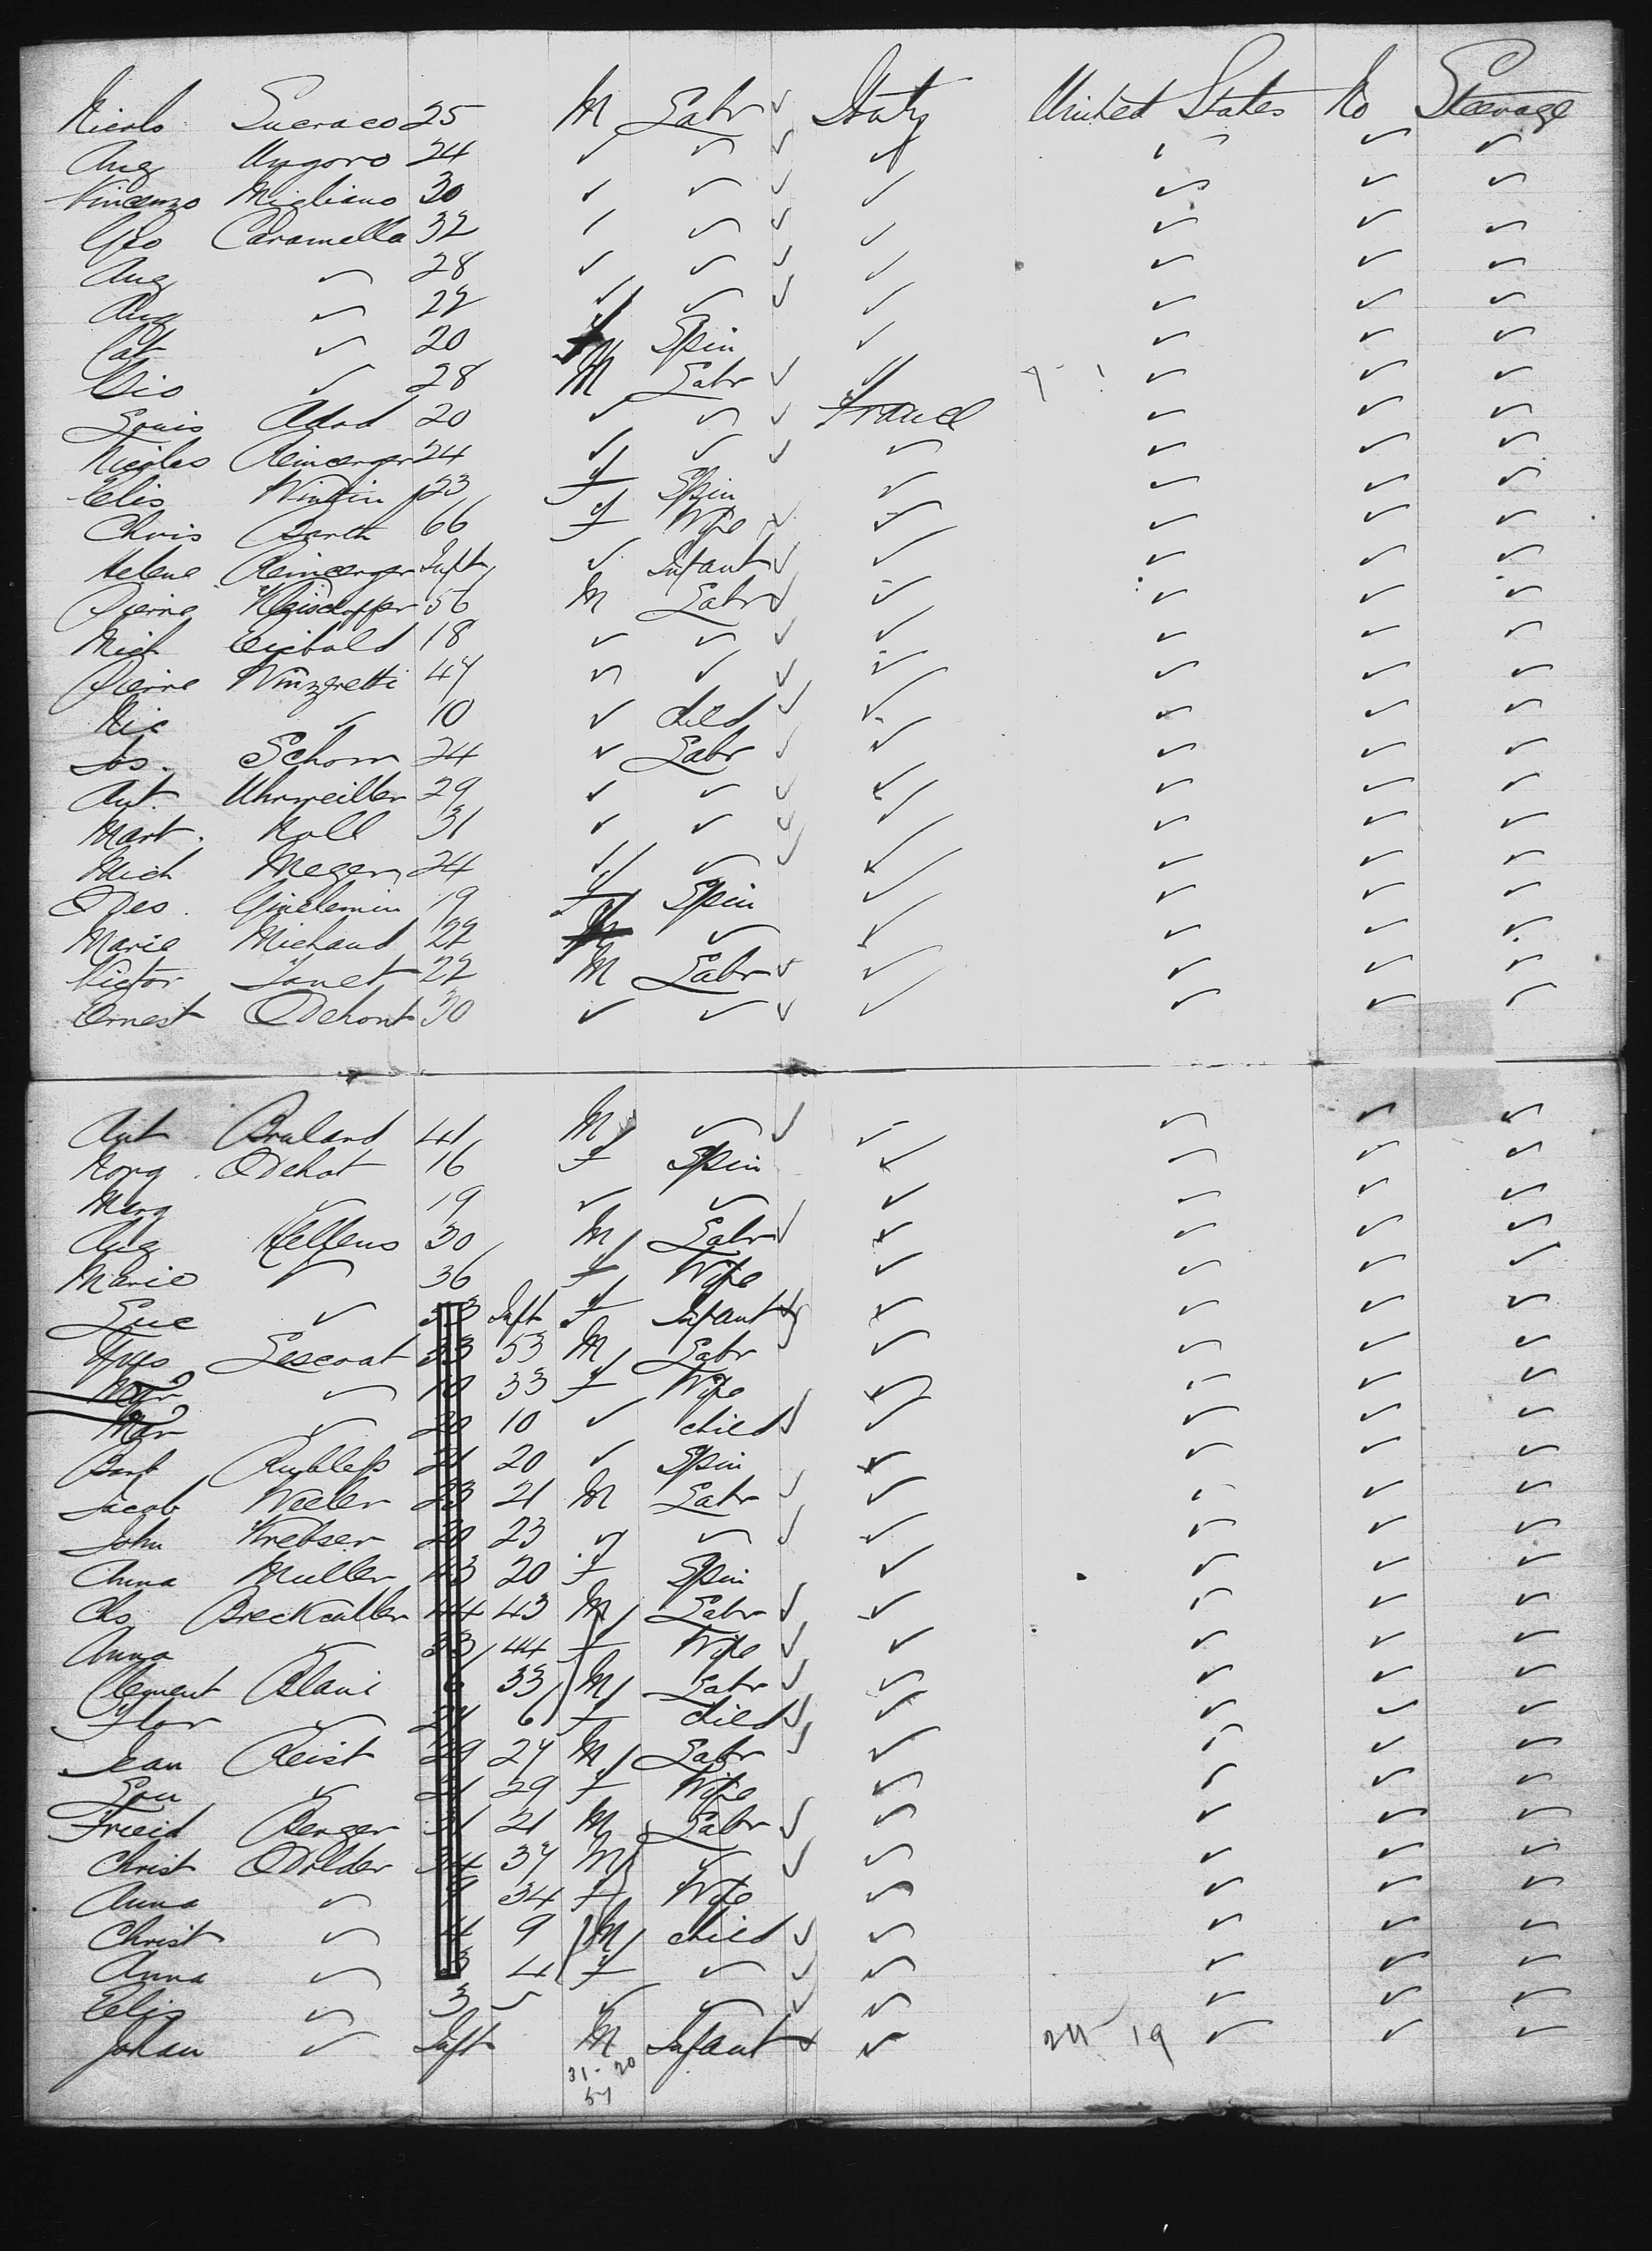 Nicolo Sueraco 25 M Labr ✓ Italy United States No Steerage
Ang Ungoro 24 ✓ ✓ ✓ ✓ ✓ ✓ ✓
Vincenzo Migliano 30 ✓ ✓ ✓ ✓ ✓ ✓ ✓
Gio Caramella 32 ✓ ✓ ✓ ✓ ✓ ✓ ✓
Ang ✓ 28 ✓ ✓ ✓ ✓ ✓ ✓ ✓
Ang ✓ 22 ✓ ✓ ✓ ✓ ✓ ✓ ✓
Cat ✓ 20 f Spin ✓ ✓ ✓ ✓
Gio ✓ 28 M Labr ✓ ✓ ✓ ✓ ✓
Louis Adod 20 ✓ ✓ ✓ France ✓ ✓ ✓
Nicolas Reincerger 24 ✓ ✓ ✓ ✓ ✓ ✓ ✓
Elis 23 f Spin ✓ ✓ ✓ ✓
Chris Barth 66 f Wife ✓ ✓ ✓ ✓ ✓
Helene Reincerger Inft ✓ Infant ✓ ✓ ✓ ✓ ✓
Pierre 56 M Labr ✓ ✓ ✓ ✓ ✓
Mich 18 ✓ ✓ ✓ ✓ ✓ ✓ ✓
Pierre Winzretti 47 ✓ ✓ ✓ ✓ ✓ ✓ ✓
Nic ✓ 10 ✓ child ✓ ✓ ✓ ✓ ✓
Jos. Schorn 24 ✓ Labr ✓ ✓ ✓ ✓ ✓
Ant. Uhrweiller 29 ✓ ✓ ✓ ✓ ✓ ✓ ✓
Mart. Noll 31 ✓ ✓ ✓ ✓ ✓ ✓ ✓
Mich Meger 24 ✓ ✓ ✓ ✓ ✓ ✓ ✓
Des. 19 f Spin ✓ ✓ ✓ ✓
Marie Michaud 22 ✓ ✓ ✓ ✓ ✓
Victor Janet 22 M Labr ✓ ✓ ✓ ✓ ✓
Ernest Dehont 30 ✓ ✓ ✓ ✓ ✓ ✓ ✓
Ant Bruland 41 M ✓ ✓ ✓ ✓ ✓ ✓
Dehot 16 f Spin ✓ ✓ ✓ ✓
Marg ✓ 19 ✓ ✓ ✓ ✓ ✓ ✓ ✓
Aug Hellens 30 M Labr ✓ ✓ ✓ ✓ ✓
Marie ✓ 36 f Wife ✓ ✓ ✓ ✓
Luc ✓ Inft f Infant ✓ ✓ ✓ ✓ ✓
Yves Lescoat 53 M Labr ✓ ✓ ✓ ✓
✓ 33 f Wife ✓ ✓ ✓ ✓
Mar ✓ 10 ✓ child ✓ ✓ ✓ ✓ ✓
Barb 20 ✓ Spin ✓ ✓ ✓ ✓
Jacob Weeler 21 M Labr ✓ ✓ ✓ ✓ ✓
John Krebser 23 ✓ ✓ ✓ ✓ ✓ ✓ ✓
Anna Muller 20 f Spin ✓ ✓ ✓ ✓
Chs Breckculler 43 M Labr ✓ ✓ ✓ ✓ ✓
Anna ✓ 44 f Wife ✓ ✓ ✓ ✓ ✓
Clement Blani 33 M Labr ✓ ✓ ✓ ✓ ✓
Flor ✓ 6 f child ✓ ✓ ✓ ✓ ✓
Jean Reist 27 M Labr ✓ ✓ ✓ ✓ ✓
Lou ✓ 29 f Wife ✓ ✓ ✓ ✓
Fried Berger 21 M Labr ✓ ✓ ✓ ✓ ✓
Christ Dolder 37 M ✓ ✓ ✓ ✓ ✓ ✓
Anna ✓ 34 f Wife ✓ ✓ ✓ ✓
Christ ✓ 9 M child ✓ ✓ ✓ ✓ ✓
Anna ✓ 4 f ✓ ✓ ✓ ✓ ✓ ✓
Elis ✓ 3 ✓ ✓ ✓ ✓ ✓ ✓ ✓ ✓
Johan ✓ Inft M Infant ✓ ✓ 19 ✓ ✓ ✓
31 - 20